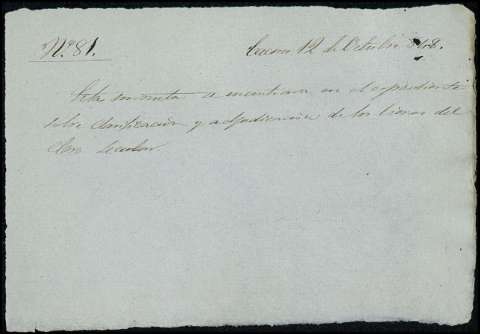 Nº 81.
12 de Octubre 1848.
Esta minuta se encontrara en el expediente
sobre clasificacion y adjudicacion de los bienes del
Clero Secular.